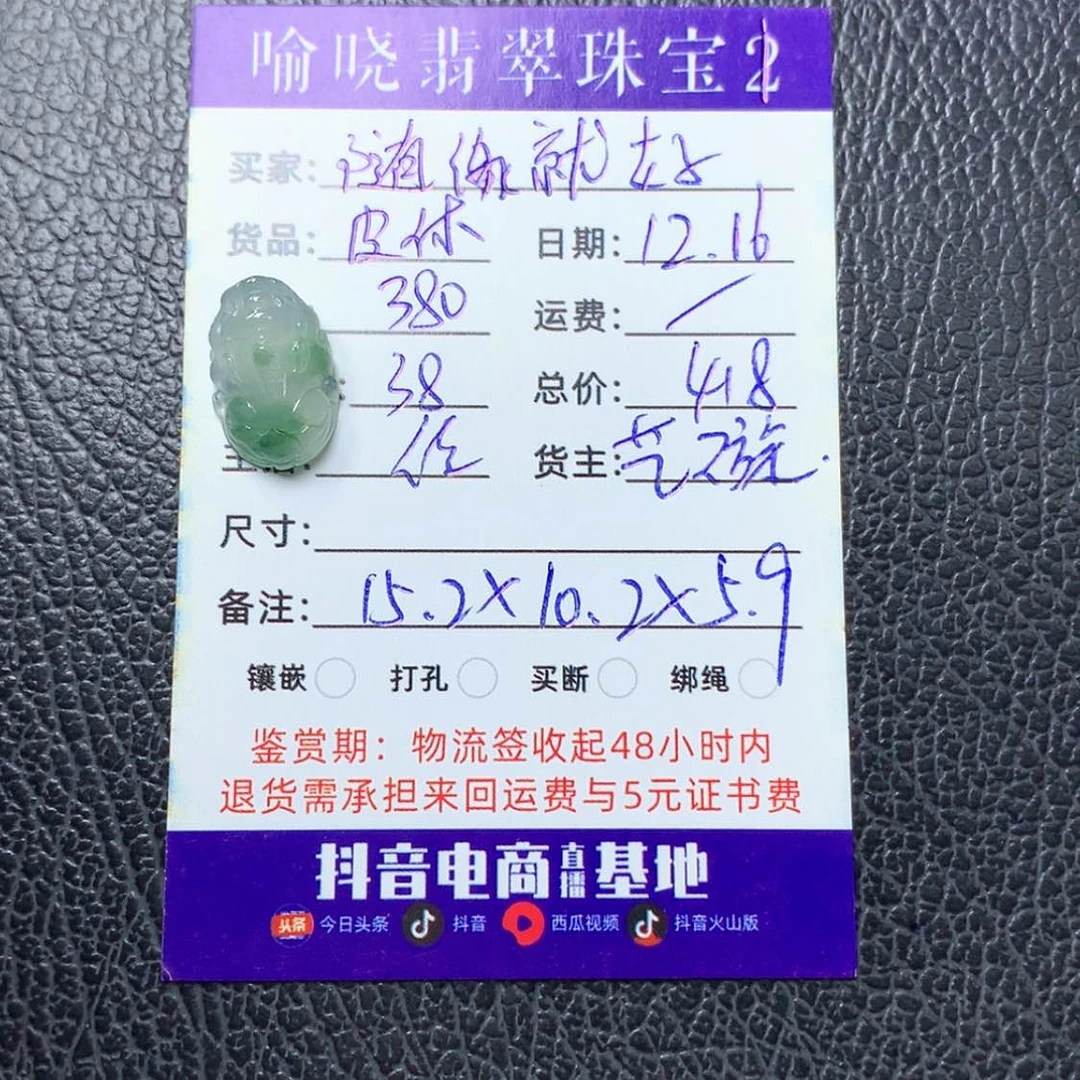 喻晓翡翠珠宝2
买家: 随缘就好
货品: 皮休 日期: 12.16
380 运费: /
: 38 总价: 418
货主:
尺寸:
备注: 15.2×10.2×5.9
镶嵌 打孔 买断 绑绳
鉴赏期: 物流签收起48小时内
退货需承担来回运费与5元证书费
抖音电商直播基地
头条 今日头条 抖音 西瓜视频 抖音火山版